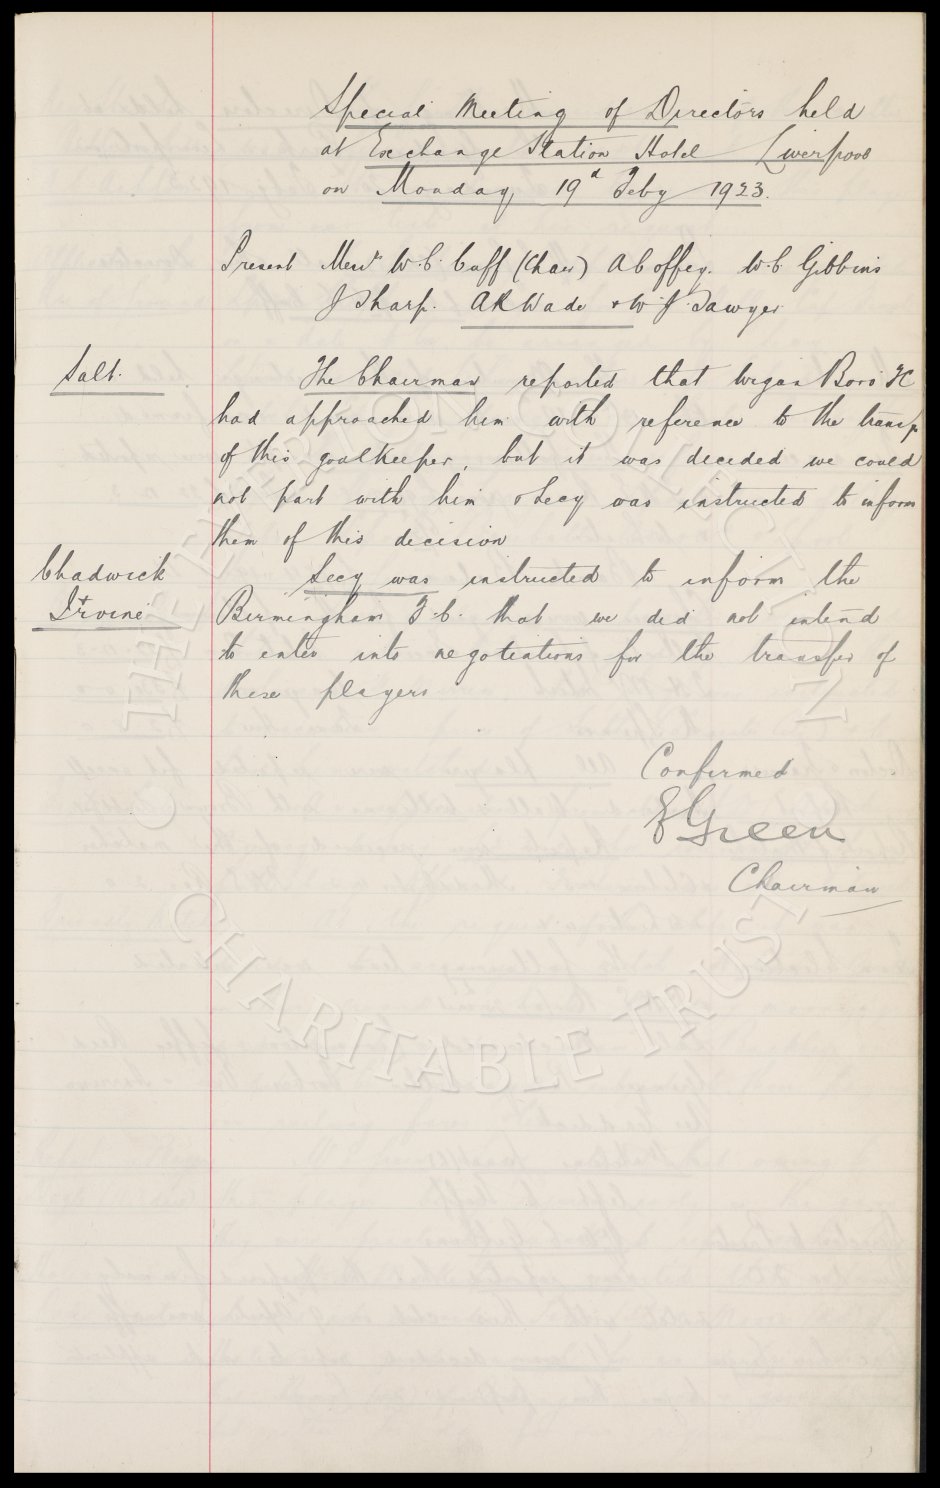 Special Meeting of Directors held
at Exchange Station Hotel Liverpool
on Monday 19d Feby 1923.
Present Messrs W.C. Cuff (Chair) A Coffey. W.C. Gibbins
J Sharp. A R Wade & W.J. Sawyer
Salt.
The Chairman reported that Wigan Boro' FC
had approached him with reference to the transf
of this goalkeeper, but it was decided we could
not part with him & Secy was instructed to inform
them of this decision
Chadwick
& Irvine
Secy was instructed to inform the
Birmingham F.C. that we did not intend
to enter into negotiations for the transfer of
these players
Confirmed
E Green
Chairman
THE EVERTON COLLECTION
CHARITABLE TRUST